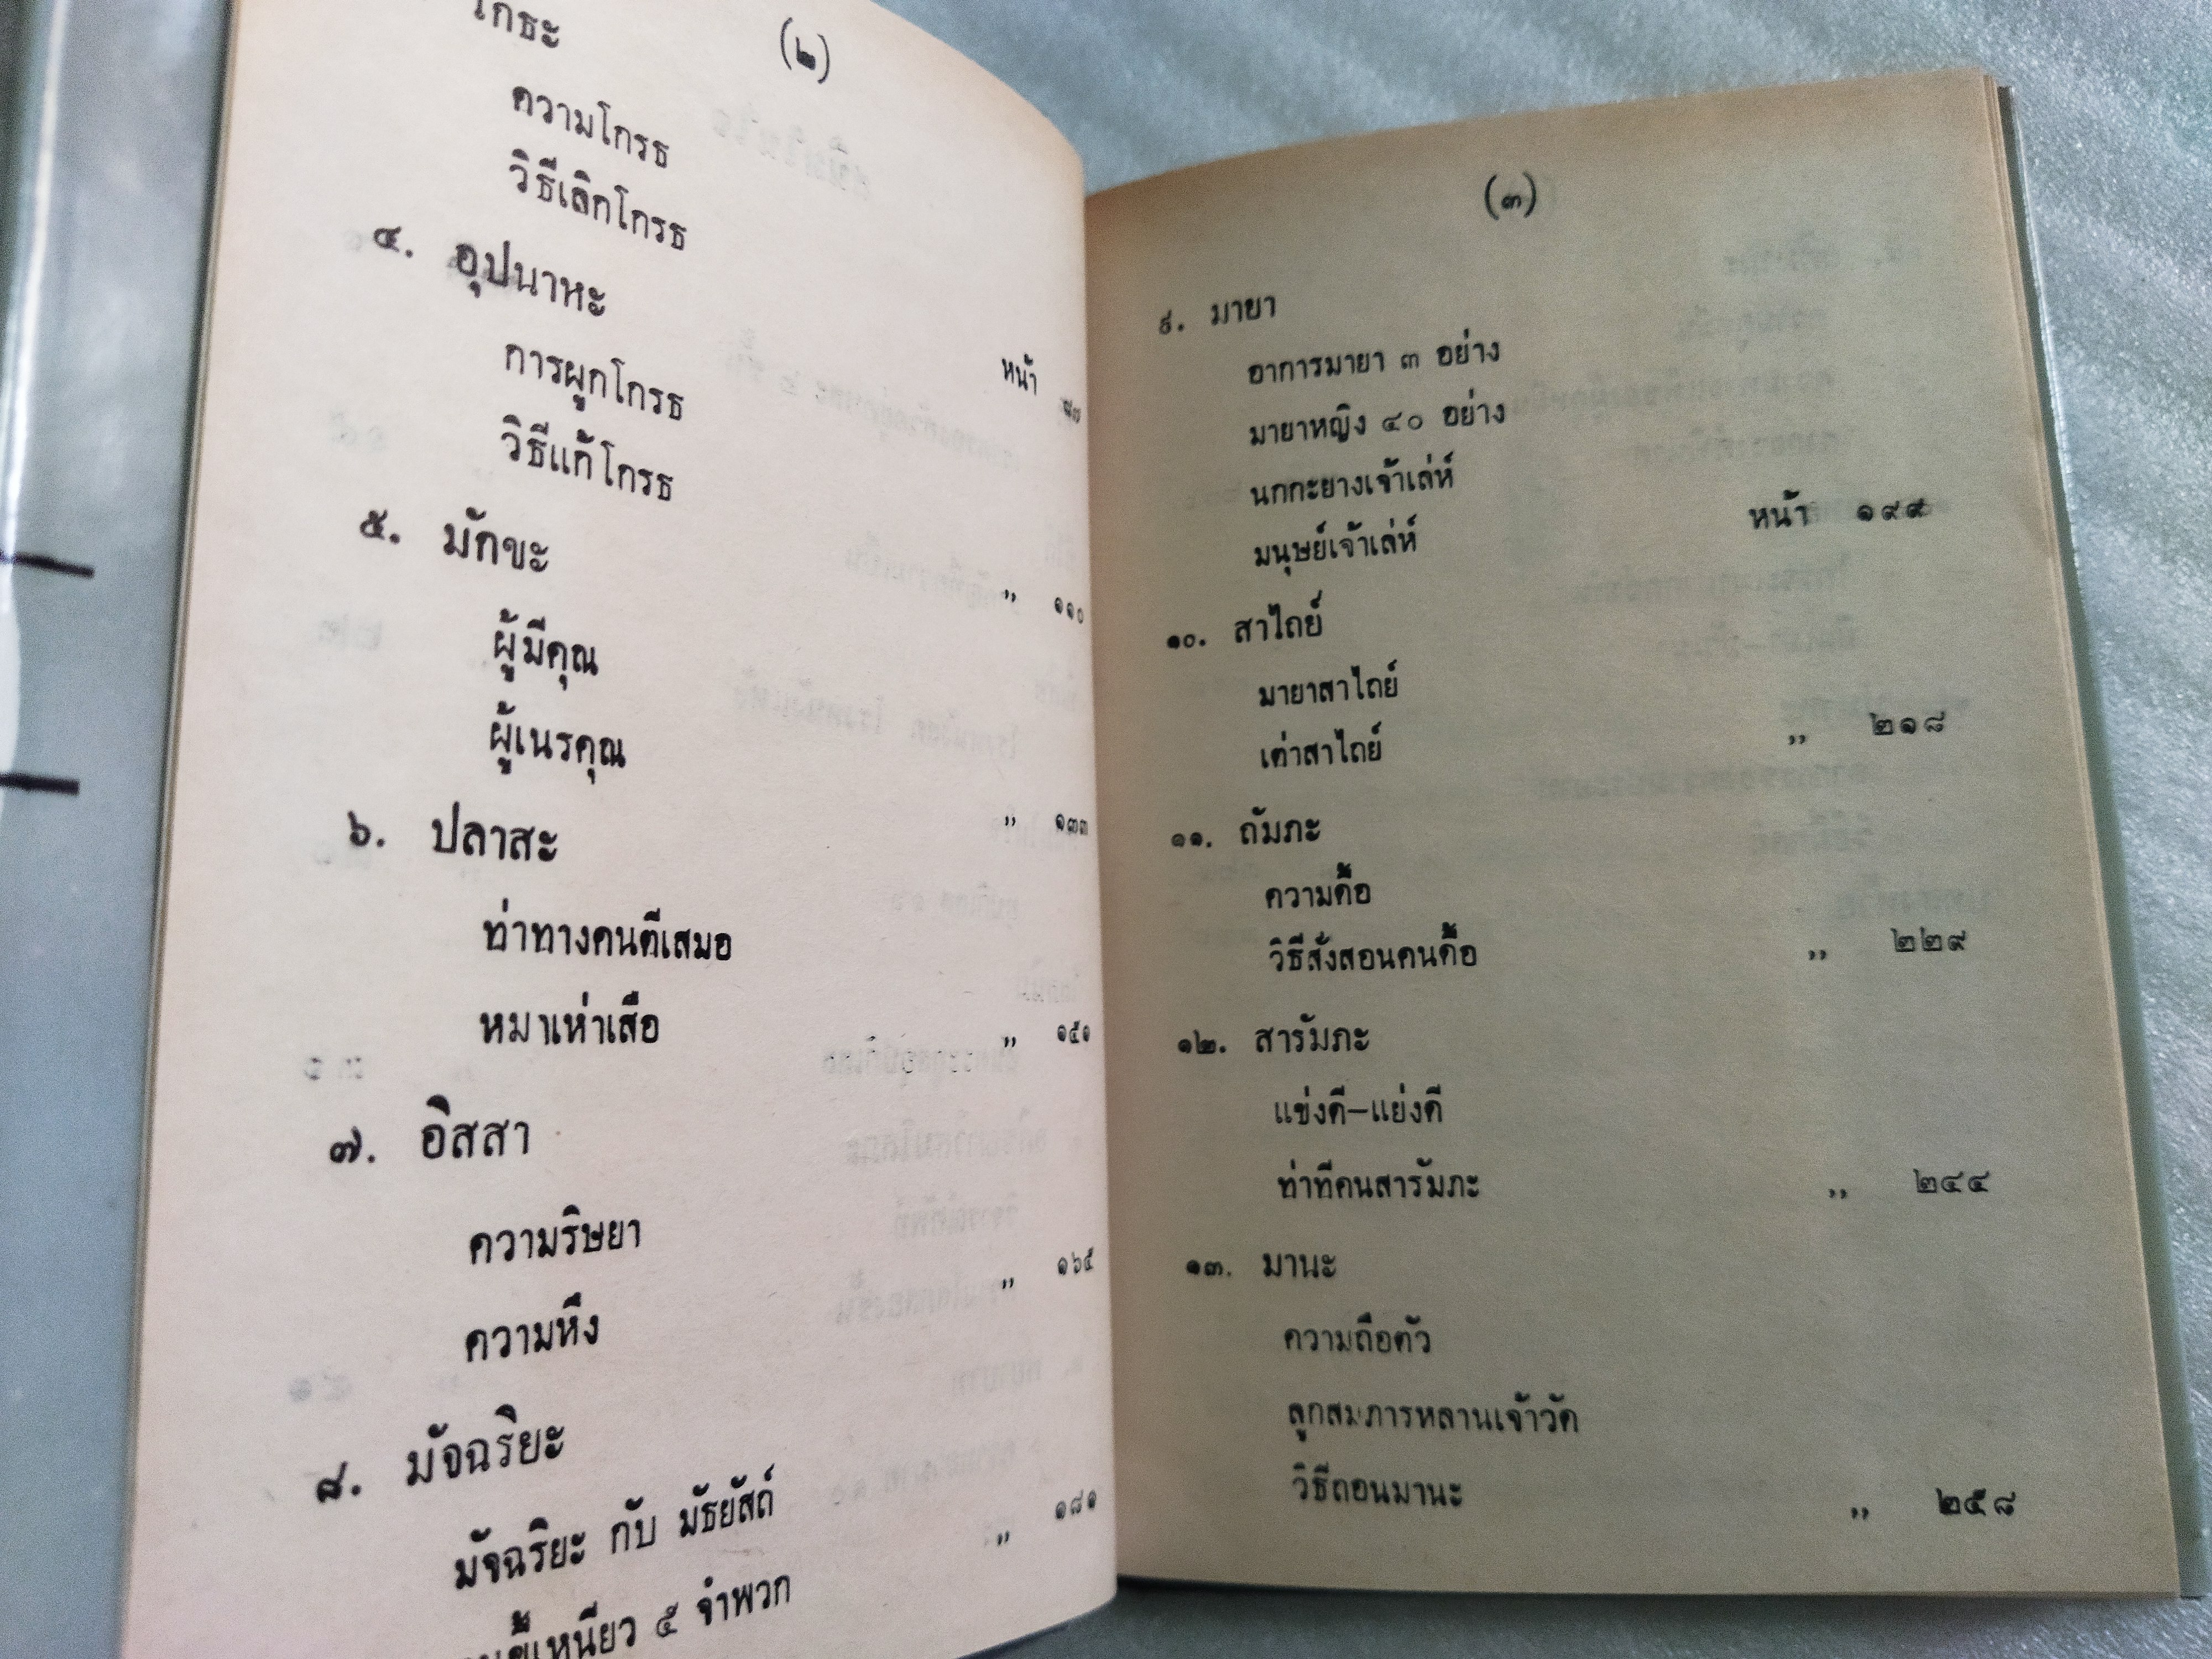 (๒)
โกธะ
ความโกรธ
วิธีเลิกโกรธ
๔. อุปนาหะ
การผูกโกรธ
วิธีแก้โกรธ
หน้า
๕. มักขะ
ผู้มีคุณ
ผู้เนรคุณ
,, ๑๑๐
๖. ปลาสะ
ท่าทางคนตีเสมอ
หมาเห่าเสือ
,, ๑๓๓
,, ๑๕๑
๗. อิสสา
ความริษยา
ความหึง
,, ๑๖๕
๘. มัจฉริยะ
มัจฉริยะ กับ มัธยัสถ์
,, ๑๘๑
ขี้เหนียว ๕ จำพวก
(๓)
๙. มายา
อาการมายา ๓ อย่าง
มายาหญิง ๔๐ อย่าง
นกกะยางเจ้าเล่ห์
มนุษย์เจ้าเล่ห์ หน้า ๑๙๙
๑๐. สาไถย์
มายาสาไถย์
เต่าสาไถย์ ,, ๒๑๘
๑๑. ถัมภะ
ความดื้อ
วิธีสั่งสอนคนดื้อ ,, ๒๒๙
๑๒. สารัมภะ
แข่งดี–แย่งดี
ท่าทีคนสารัมภะ ,, ๒๔๔
๑๓. มานะ
ความถือตัว
ลูกสมภารหลานเจ้าวัด
วิธีถอนมานะ ,, ๒๕๘